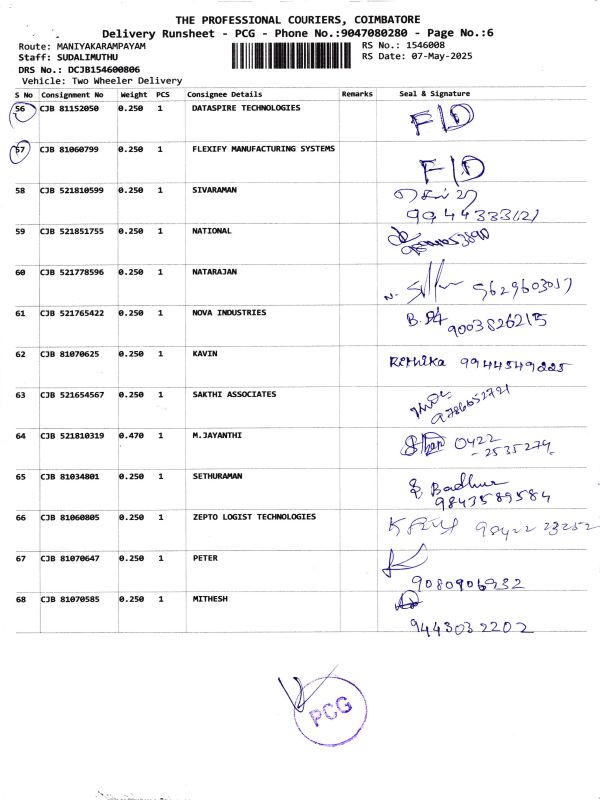 THE PROFESSIONAL COURIERS, COIMBATORE
Delivery Runsheet - PCG - Phone No.:9047080280 - Page No.:6
Route: MANIYAKARAMPAYAM RS No.: 1546008
Staff: SUDALIMUTHU RS Date: 07-May-2025
DRS No.: DCJB154600806
Vehicle: Two Wheeler Delivery
S No Consignment No Weight PCS Consignee Details Remarks Seal & Signature
56 CJB 81152050 0.250 1 DATASPIRE TECHNOLOGIES F/D
57 CJB 81060799 0.250 1 FLEXIFY MANUFACTURING SYSTEMS F/D
58 CJB 521810599 0.250 1 SIVARAMAN
59 CJB 521851755 0.250 1 NATIONAL
60 CJB 521778596 0.250 1 NATARAJAN 9629603017
61 CJB 521765422 0.250 1 NOVA INDUSTRIES 9003826215
62 CJB 81070625 0.250 1 KAVIN Rithika 9944549225
63 CJB 521654567 0.250 1 SAKTHI ASSOCIATES 9786652721
64 CJB 521810319 0.470 1 M.JAYANTHI 0422
- 2535279
65 CJB 81034801 0.250 1 SETHURAMAN Badhur
9843589584
66 CJB 81060805 0.250 1 ZEPTO LOGIST TECHNOLOGIES 98422 23252
67 CJB 81070647 0.250 1 PETER
9080906932
68 CJB 81070585 0.250 1 MITHESH
9443032202
PCG